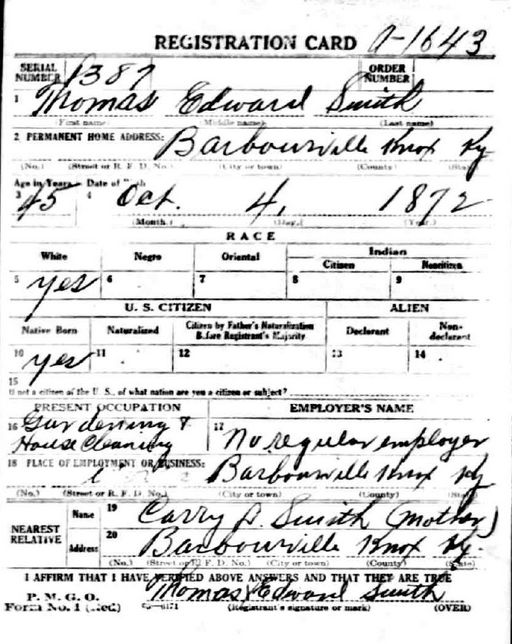 REGISTRATION CARD A-1643
SERIAL NUMBER 1387 ORDER NUMBER
1 Thomas Edward Smith
(First name) (Middle name) (Last name)
2 PERMANENT HOME ADDRESS: Barbourville Knox Ky
(No.) (Street or R. F. D. No.) (City or town) (County) (State)
Age in Years Date of Birth
3 45 4 Oct. 4, 1872
(Month.) (Day.) (Year.)
RACE
White Negro Oriental Indian
Citizen Noncitizen
5 yes 6 7 8 9
U. S. CITIZEN ALIEN
Native Born Naturalized Citizen by Father's Naturalization Before Registrant's Majority Declarant Non-declarant
10 yes 11 12 13 14
15
If not a citizen of the U. S., of what nation are you a citizen or subject?
PRESENT OCCUPATION EMPLOYER'S NAME
16 Gardening & House Cleaning 17 No regular employer
18 PLACE OF EMPLOYMENT OR BUSINESS: Barbourville Knox Ky
(No.) (Street or R. F. D. No.) (City or town) (County) (State)
NEAREST RELATIVE Name 19 Carry D. Smith (Mother)
Address 20 Barbourville Knox Ky.
(No.) (Street or R. F. D. No.) (City or town) (County) (State)
I AFFIRM THAT I HAVE VERIFIED ABOVE ANSWERS AND THAT THEY ARE TRUE
P. M. G. O.
Form No. 1 (Red) Thomas Edward Smith
(Registrant's signature or mark) (OVER)